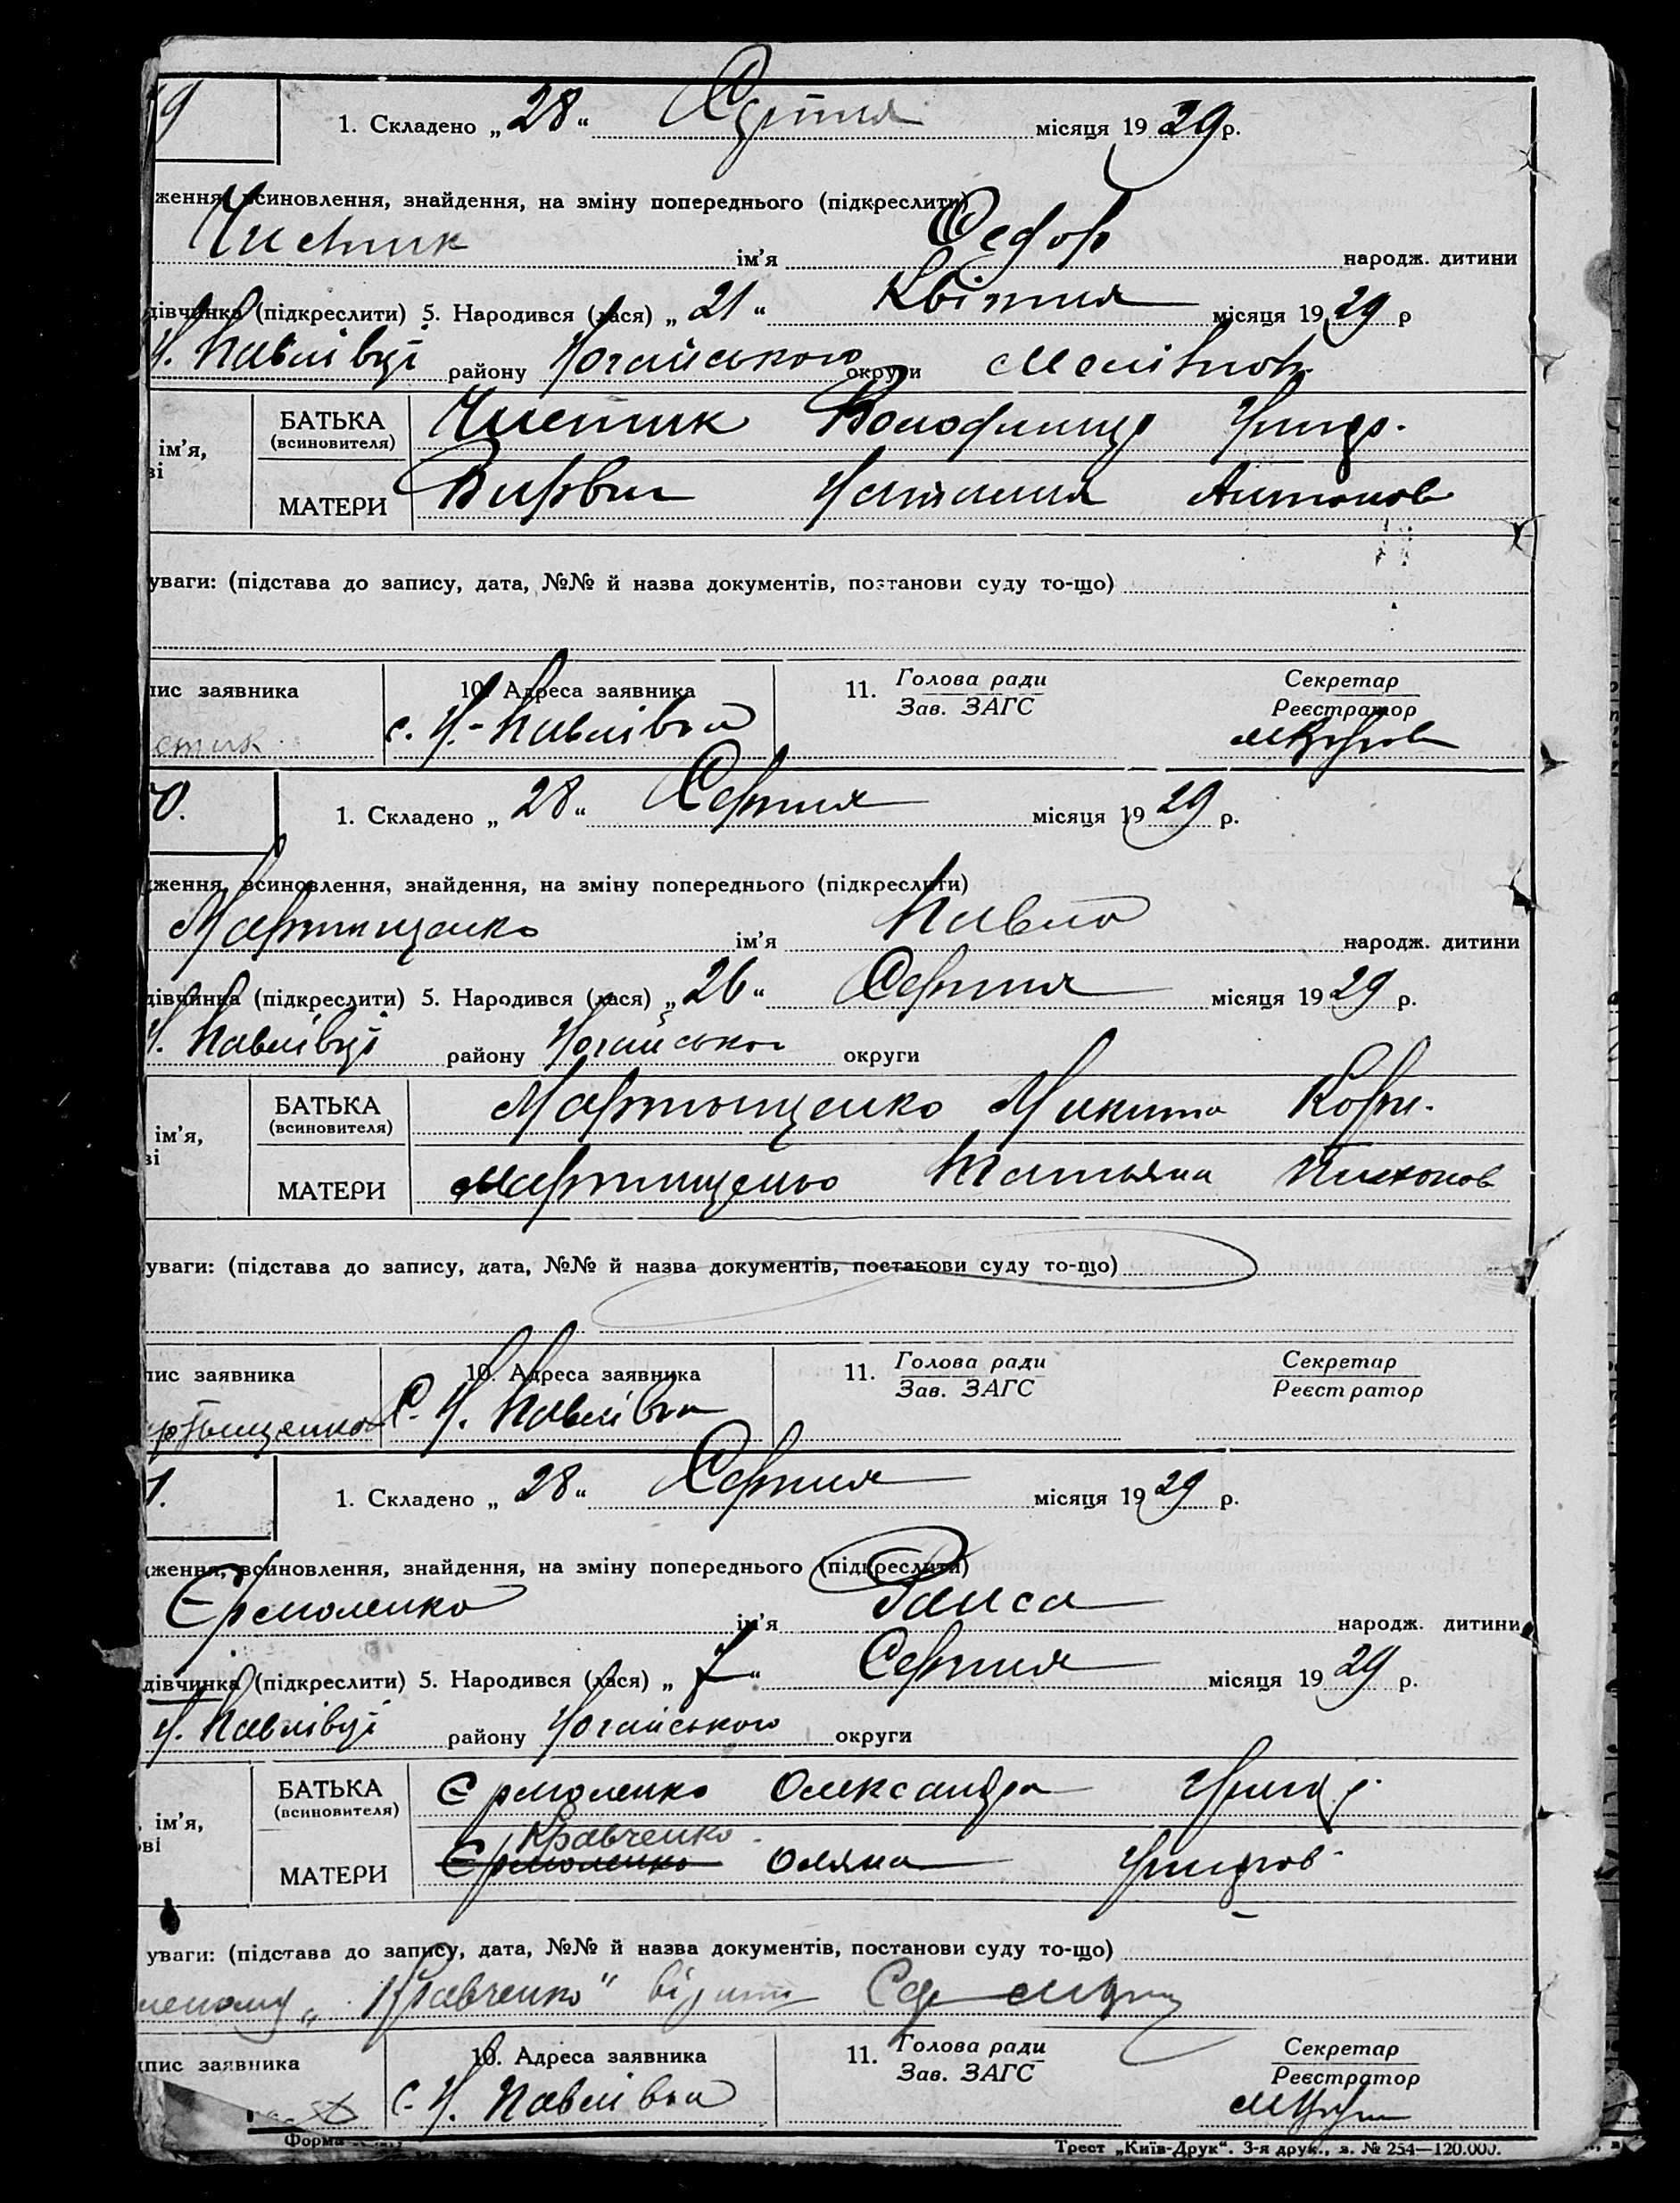 9
1. Складено „28“ Серпня місяця 1929 р.
ження, всиновлення, знайдення, на зміну попереднього (підкреслити)
Чистик ім’я Федор народж. дитини
дівчинка (підкреслити) 5. Народився (лася) „21“ Квітня місяця 1929 р
Н. Павлівці району Ногайського округи Мелітоп.
ім’я,
ві
БАТЬКА Чистик Володимир Григор.
(всиновителя)
МАТЕРИ Наталия Антонов
уваги: (підстава до запису, дата, №№ й назва документів, постанови суду то-що)
пис заявника 10. Адреса заявника 11. Голова ради Секретар
Зав. ЗАГС Реєстратор
стик с. Н.-Павлівка
70.
1. Складено „28“ Серпня місяця 1929 р.
дження, всиновлення, знайдення, на зміну попереднього (підкреслити)
Мартищенко ім’я Павло народж. дитини
дівчинка (підкреслити) 5. Народився (лася) „26“ Серпня місяця 1929 р.
Н. Павлівці району Ногайськог округи
ім’я,
ві
БАТЬКА Мартыщенко Микита Корн.
(всиновителя)
МАТЕРИ Мартищенко Татьяна Тихонов
уваги: (підстава до запису, дата, №№ й назва документів, постанови суду то-що)
пис заявника 10. Адреса заявника 11. Голова ради Секретар
Зав. ЗАГС Реєстратор
ртыщенко С. Н. Павлівка
1.
1. Складено „28“ Серпня місяця 1929 р.
дження, всиновлення, знайдення, на зміну попереднього (підкреслити)
Єрмоленко ім’я Раиса народж. дитини
дівчинка (підкреслити) 5. Народився (лася) „7“ Серпня місяця 1929 р.
Н. Павлівці району Ногайського округи
, ім’я,
ові
БАТЬКА Єрмоленко Олександра Григ.
(всиновителя)
Кравченко
МАТЕРИ Єрмоленко Оляна Григров
уваги: (підстава до запису, дата, №№ й назва документів, постанови суду то-що)
„Кравченко“
дпис заявника 10. Адреса заявника 11. Голова ради Секретар
Зав. ЗАГС Реєстратор
С. Н. Павлівка
Форма
Трест „Київ-Друк“. 3-я друк., з. № 254—120.000.